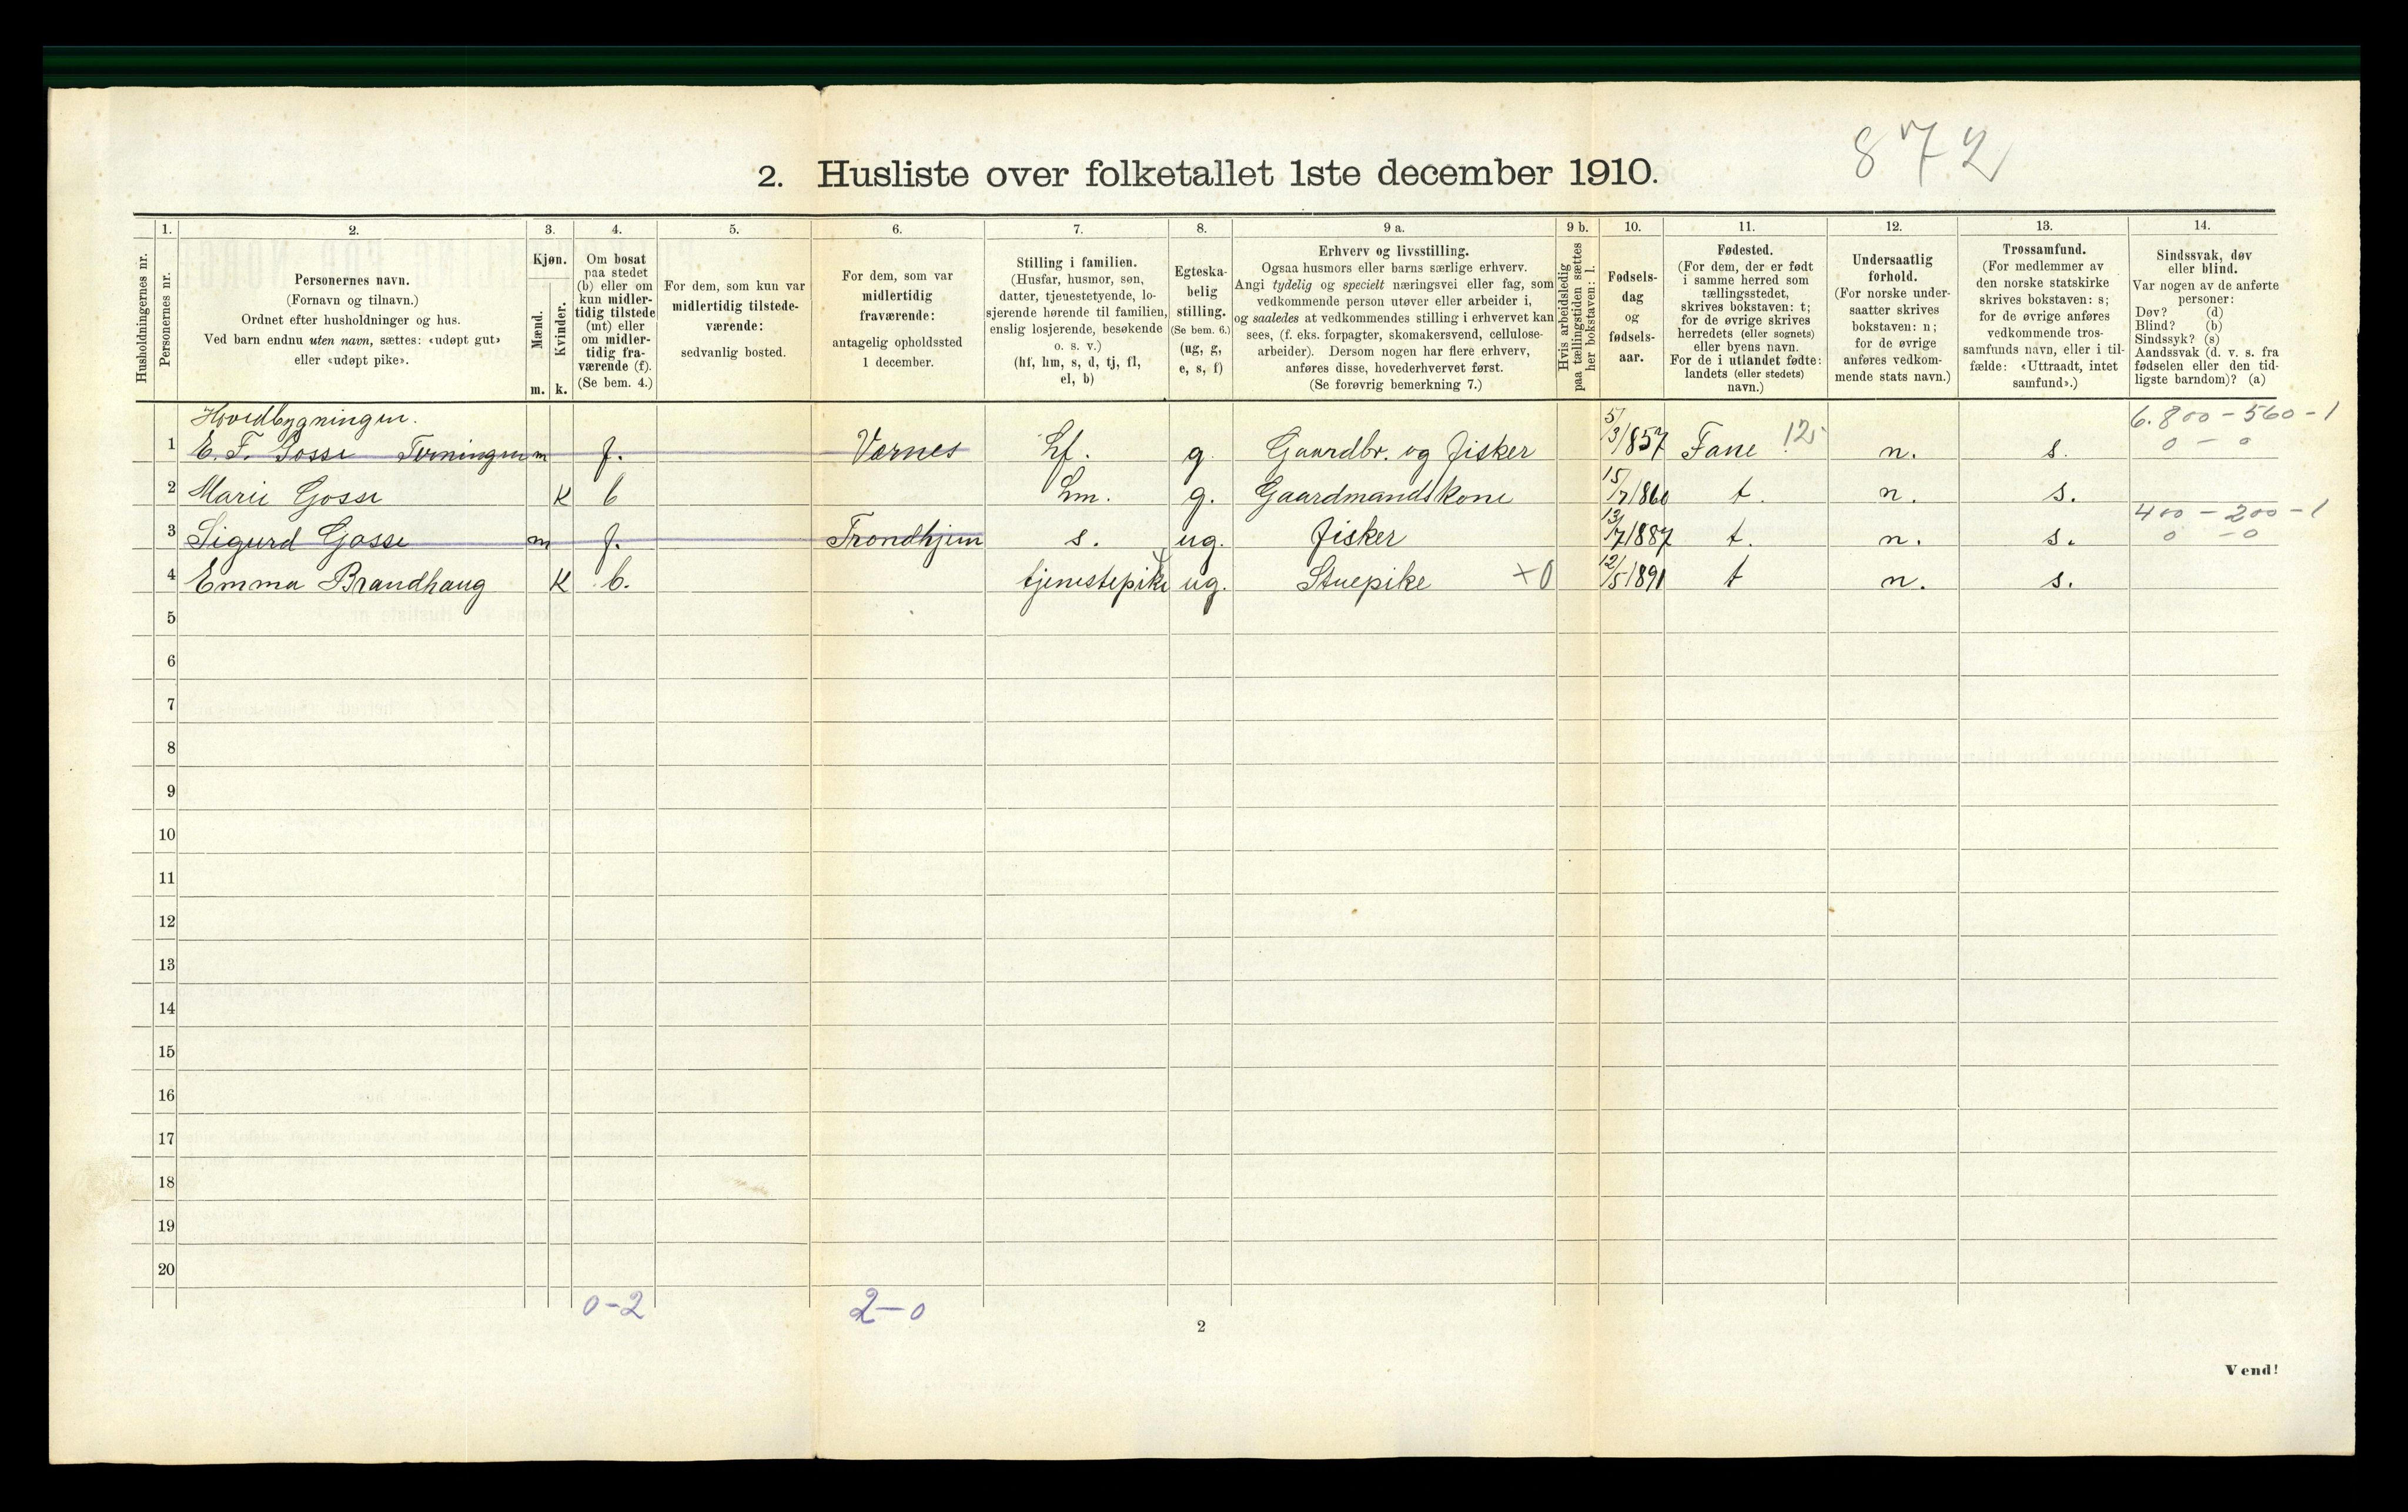 872
2. Husliste over folketallet 1ste december 1910.
Husholdningernes nr.
1.
Personernes nr.
2.
Personernes navn.
(Fornavn og tilnavn.)
Ordnet efter husholdninger og hus.
Ved barn endnu uten navn, sættes: «udøpt gut»
eller «udøpt pike».
3.
Kjøn.
Mænd.
m.
Kvinder.
k.
4.
Om bosat
paa stedet
(b) eller om
kun midler-
tidig tilstede
(mt) eller
om midler-
tidig fra-
værende (f).
(Se bem. 4.)
5.
For dem, som kun var
midlertidig tilstede-
værende:
sedvanlig bosted.
6.
For dem, som var
midlertidig
fraværende:
antagelig opholdssted
1 december.
7.
Stilling i familien.
(Husfar, husmor, søn,
datter, tjenestetyende, lo-
sjerende hørende til familien,
enslig losjerende, besøkende
o. s. v.)
(hf, hm, s, d, tj, fl,
el, b)
8.
Egteska-
belig
stilling.
(Se bem. 6.)
(ug, g,
e, s, f)
9 a.
Erhverv og livsstilling.
Ogsaa husmors eller barns særlige erhverv.
Angi tydelig og specielt næringsvei eller fag, som
vedkommende person utøver eller arbeider i,
og saaledes at vedkommendes stilling i erhvervet kan
sees, (f. eks. forpagter, skomakersvend, cellulose-
arbeider). Dersom nogen har flere erhverv,
anføres disse, hovederhvervet først.
(Se forøvrig bemerkning 7.)
9 b.
Hvis arbeidsledig
paa tællingstiden sættes
her bokstaven: l.
10.
Fødsels-
dag
og
fødsels-
aar.
11.
Fødested.
(For dem, der er født
i samme herred som
tællingsstedet,
skrives bokstaven: t;
for de øvrige skrives
herredets (eller sognets)
eller byens navn.
For de i utlandet fødte:
landets (eller stedets)
navn.)
12.
Undersaatlig
forhold.
(For norske under-
saatter skrives
bokstaven: n;
for de øvrige
anføres vedkom-
mende stats navn.)
13.
Trossamfund.
(For medlemmer av
den norske statskirke
skrives bokstaven: s;
for de øvrige anføres
vedkommende tros-
samfunds navn, eller i til-
fælde: «Uttraadt, intet
samfund».)
14.
Sindssvak, døv
eller blind.
Var nogen av de anførte
personer:
Døv? (d)
Blind? (b)
Sindssyk? (s)
Aandssvak (d. v. s. fra
fødselen eller den tid-
ligste barndom)? (a)
Hovedbygningen.
6.800 - 560 - 1
1 E. F. Gosse Terningen m f. Vernes hf. g. Gaardbr. og fisker 5/3/857 Fane 125 n. s. 0 - 0
2 Marie Gosse K b hm. g. Gaardmandskone 15/7/860 t. n. s.
400 - 200 - 1
3 Sigurd Gosse m f. Trondhjem s. ug. fisker 13/7/887 t. n. s. 0 - 0
4 Emma Brandhaug K b. tjenestepike ug. Stuepike ×0 12/5/1891 t n. s.
5
6
7
8
9
10
11
12
13
14
15
16
17
18
19
20
0-2 2-0
2
Vend!